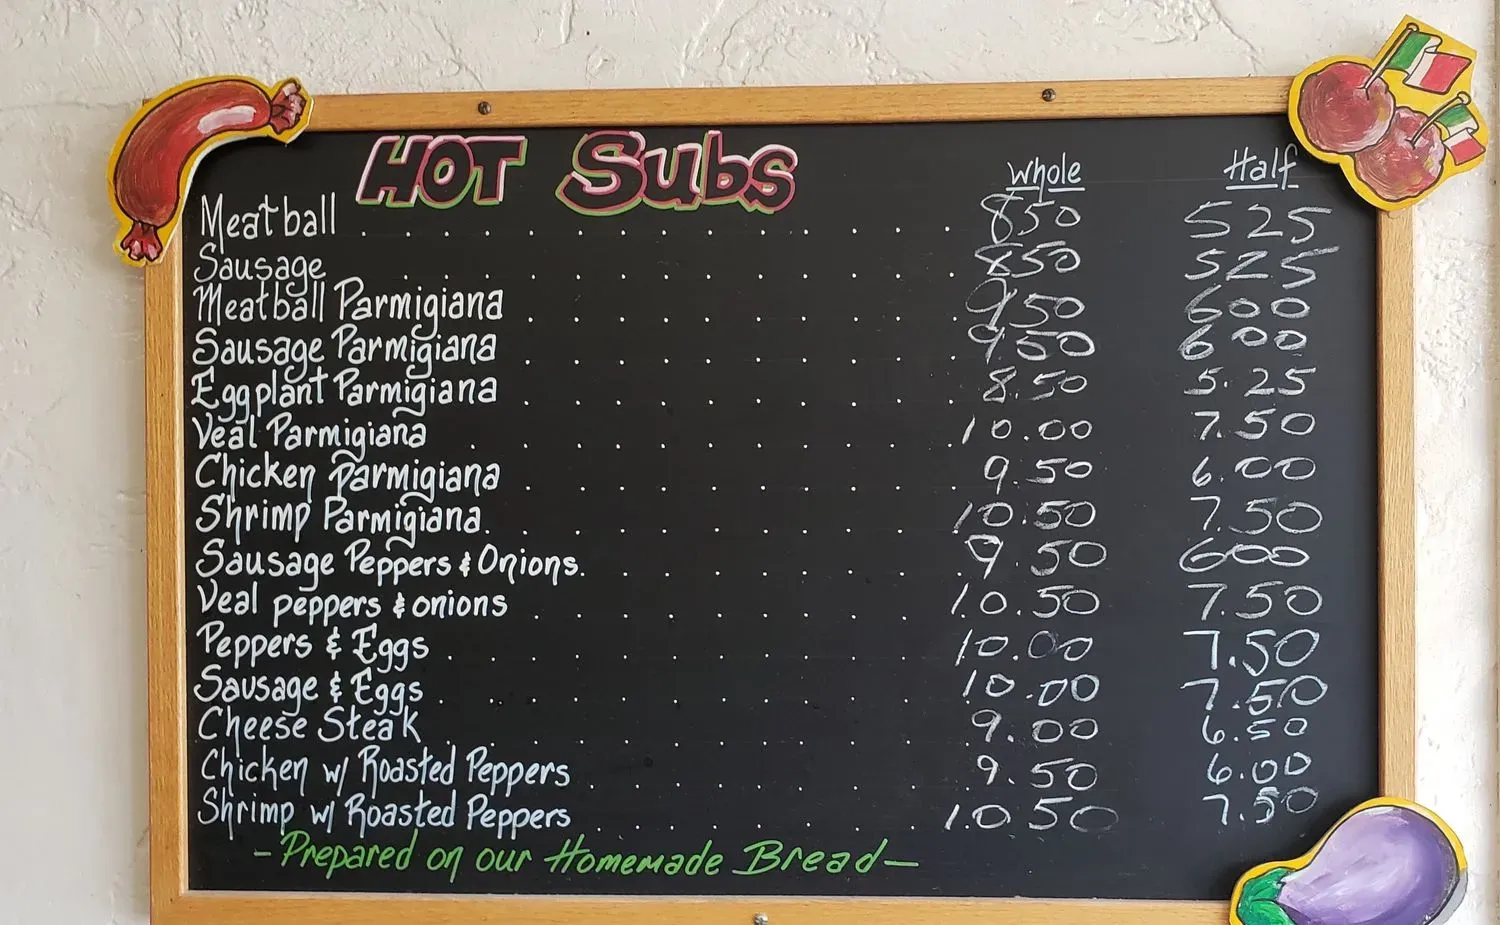 HOT Subs Whole Half
Meatball . . . . . . . . . . . . . . 850 525
Sausage . . . . . . . . . . . . . 850 525
Meatball Parmigiana . . . . . . . . . . 950 600
Sausage Parmigiana . . . . . . . . . . 9.50 600
Eggplant Parmigiana . . . . . . . . . . 8.50 5.25
Veal Parmigiana . . . . . . . . . . . 10.00 7.50
Chicken Parmigiana . . . . . . . . . . 9.50 6.00
Shrimp Parmigiana . . . . . . . . . . 10.50 7.50
Sausage Peppers & Onions . . . . . . . . . 9.50 600
Veal peppers & onions . . . . . . . . . 10.50 7.50
Peppers & Eggs . . . . . . . . . . . 10.00 7.50
Sausage & Eggs . . . . . . . . . . . 10.00 7.50
Cheese Steak . . . . . . . . . . . 9.00 6.50
Chicken w/ Roasted Peppers . . . . . . . . 9.50 6.00
Shrimp w/ Roasted Peppers . . . . . . . . 10.50 7.50
- Prepared on our Homemade Bread -